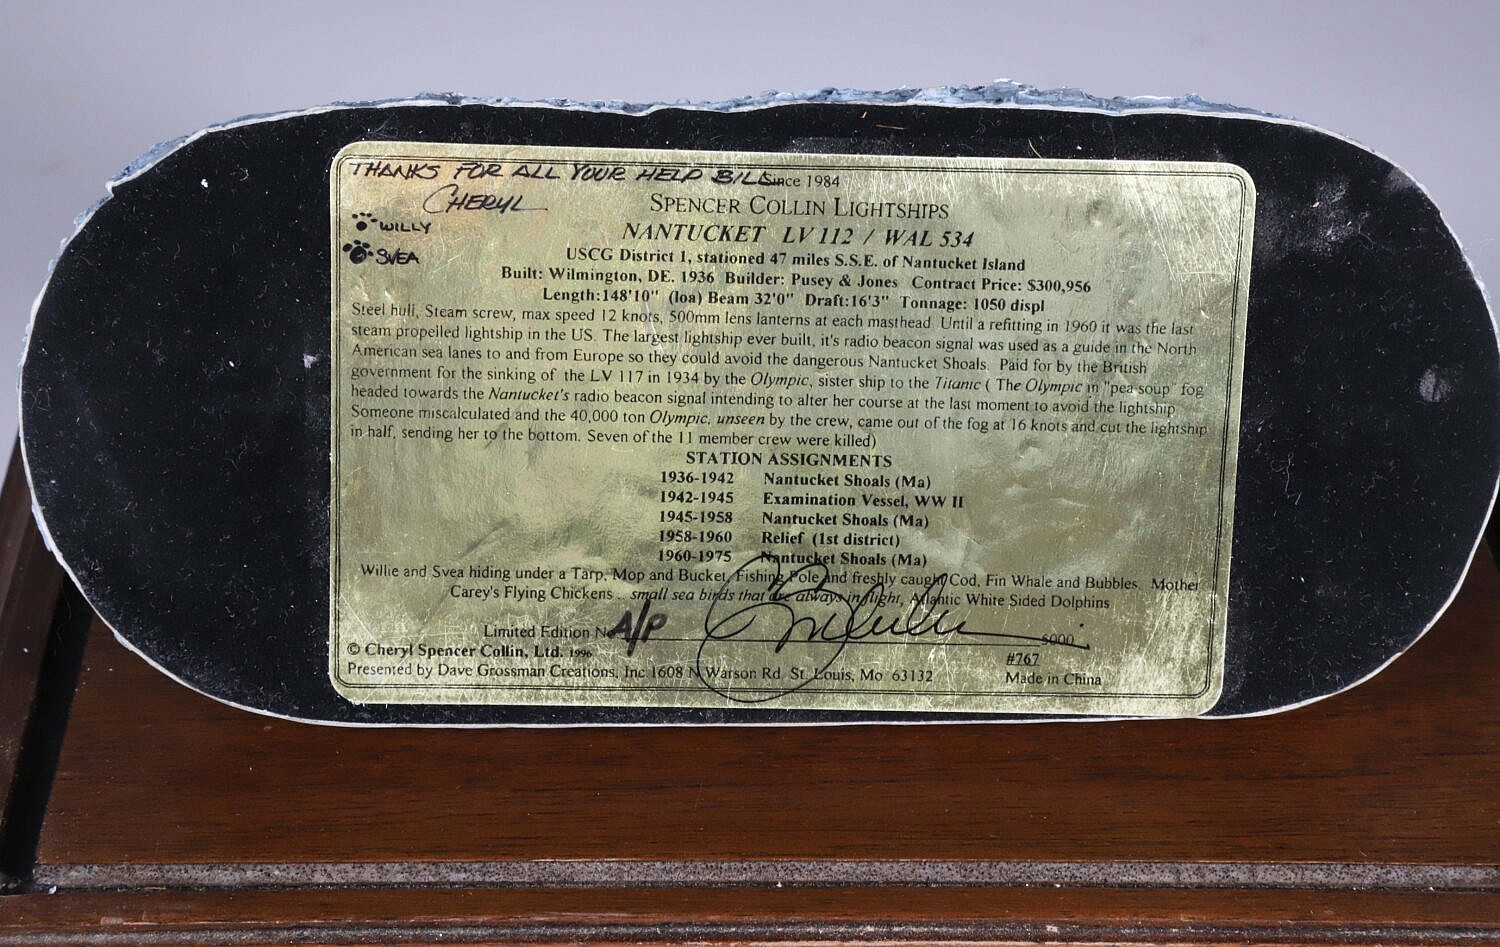 THANKS FOR ALL YOUR HELP BILL
Since 1984
CHERYL
WILLY
SVEA
SPENCER COLLIN LIGHTSHIPS
NANTUCKET LV 112 / WAL 534
USCG District 1, stationed 47 miles S.S.E. of Nantucket Island
Built: Wilmington, DE. 1936 Builder: Pusey & Jones Contract Price: $300,956
Length:148'10" (loa) Beam 32'0" Draft:16'3" Tonnage: 1050 displ
Steel hull, Steam screw, max speed 12 knots, 500mm lens lanterns at each masthead. Until a refitting in 1960 it was the last
steam propelled lightship in the US. The largest lightship ever built, it's radio beacon signal was used as a guide in the North
American sea lanes to and from Europe so they could avoid the dangerous Nantucket Shoals. Paid for by the British
government for the sinking of the LV 117 in 1934 by the Olympic, sister ship to the Titanic ( The Olympic in "pea soup" fog
headed towards the Nantucket's radio beacon signal intending to alter her course at the last moment to avoid the lightship
Someone miscalculated and the 40,000 ton Olympic, unseen by the crew, came out of the fog at 16 knots and cut the lightship
in half, sending her to the bottom. Seven of the 11 member crew were killed)
STATION ASSIGNMENTS
1936-1942 Nantucket Shoals (Ma)
1942-1945 Examination Vessel, WW II
1945-1958 Nantucket Shoals (Ma)
1958-1960 Relief (1st district)
1960-1975 Nantucket Shoals (Ma)
Willie and Svea hiding under a Tarp, Mop and Bucket, Fishing Pole and freshly caught Cod, Fin Whale and Bubbles. Mother
Carey's Flying Chickens .. small sea birds that are always in flight, Atlantic White Sided Dolphins
Limited Edition No A/P 5000
© Cheryl Spencer Collin, Ltd. 1996 #767
Presented by Dave Grossman Creations, Inc 1608 N Warson Rd. St. Louis, Mo 63132 Made in China